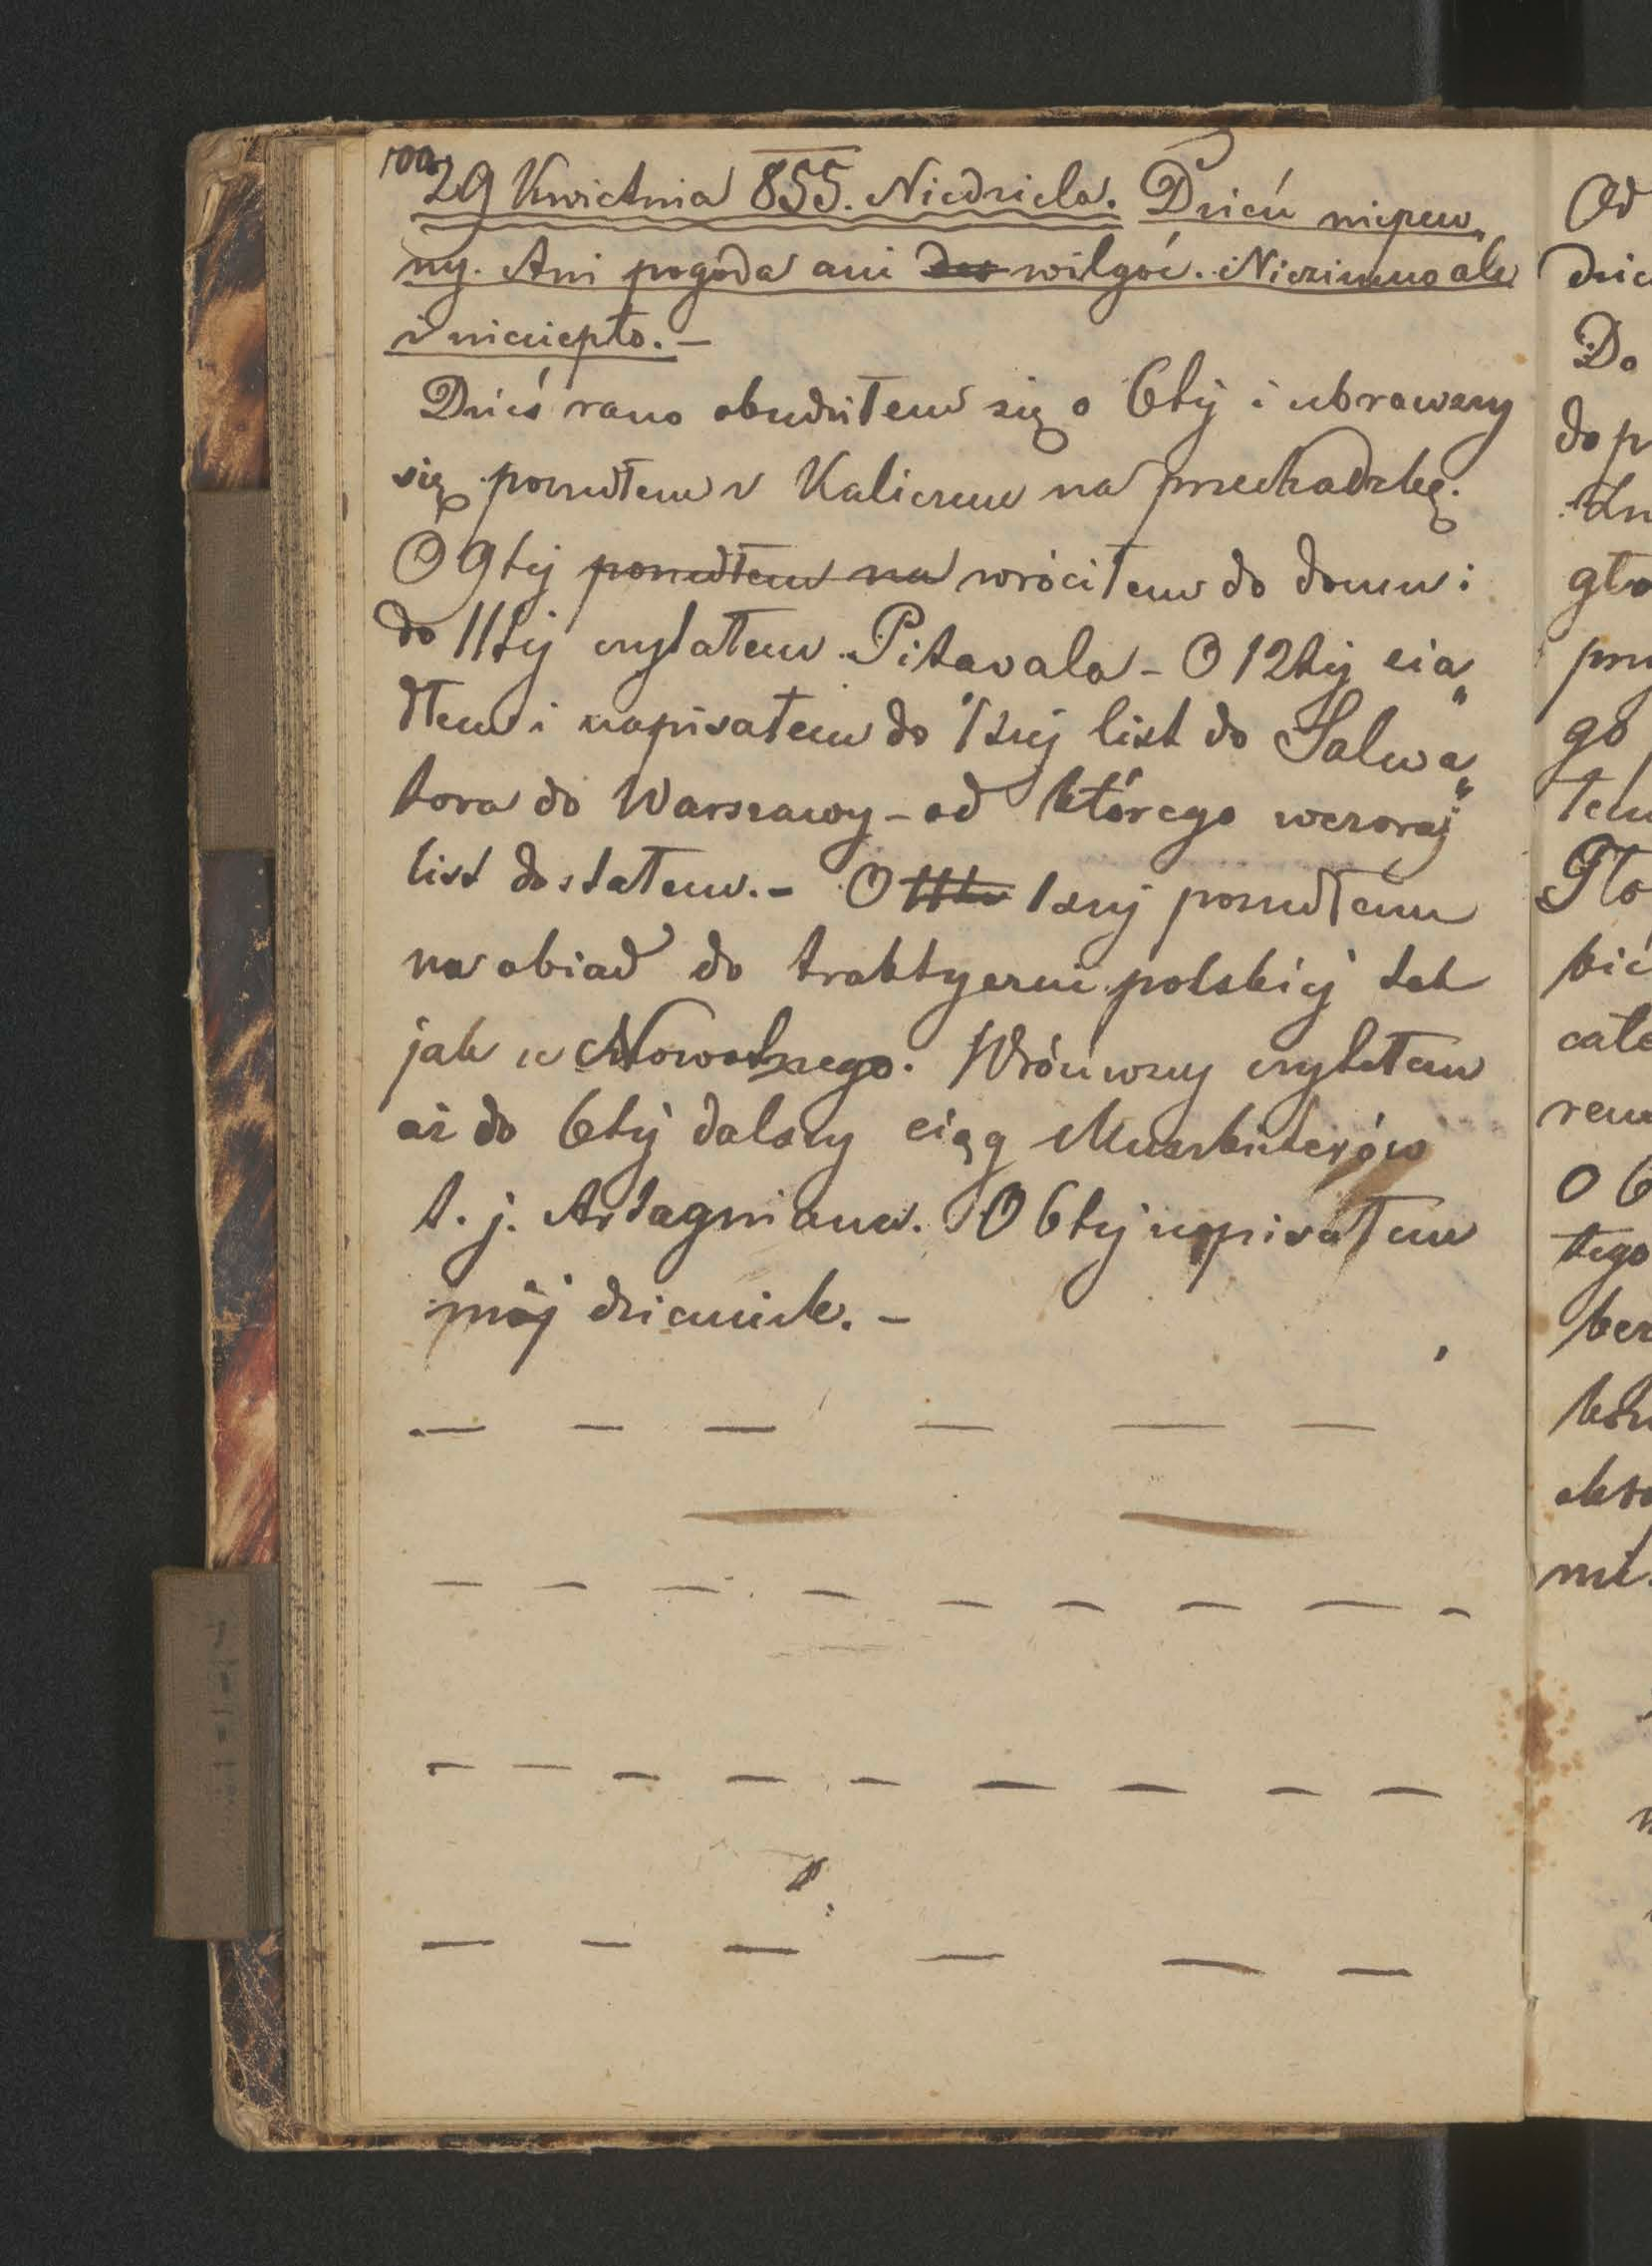 100.
29 Kwietnia 855. Niedziela. Dzień niepew„
ny. Ani pogoda ani wilgoć. Niezimno ale
i nieciepło. –
Dziś rano obudziłem się o 6téj i ubrawszy
się poszedłem z Kaliczem na przechadzkę.
O 9téj poszedłem na wróciłem do domu i
do 11téj czytałem Pitavala – O 12téj sia„
dłem i napisałem do 1széj list do Salwa„
tora do Warszawy – od którego wczoraj
list dostałem. – O 1széj poszedłem
na obiad do traktyerni polskiéj tak
jak u Nowotnego. Wróciwszy czytałem
aż do 6téj dalszy ciąg Muszkieterów
t. j. Artagniana. O 6téj napisałem
mój dziennik. –
Od
Do
do p
gło
go
łem
Tło
całe
O 6
tego